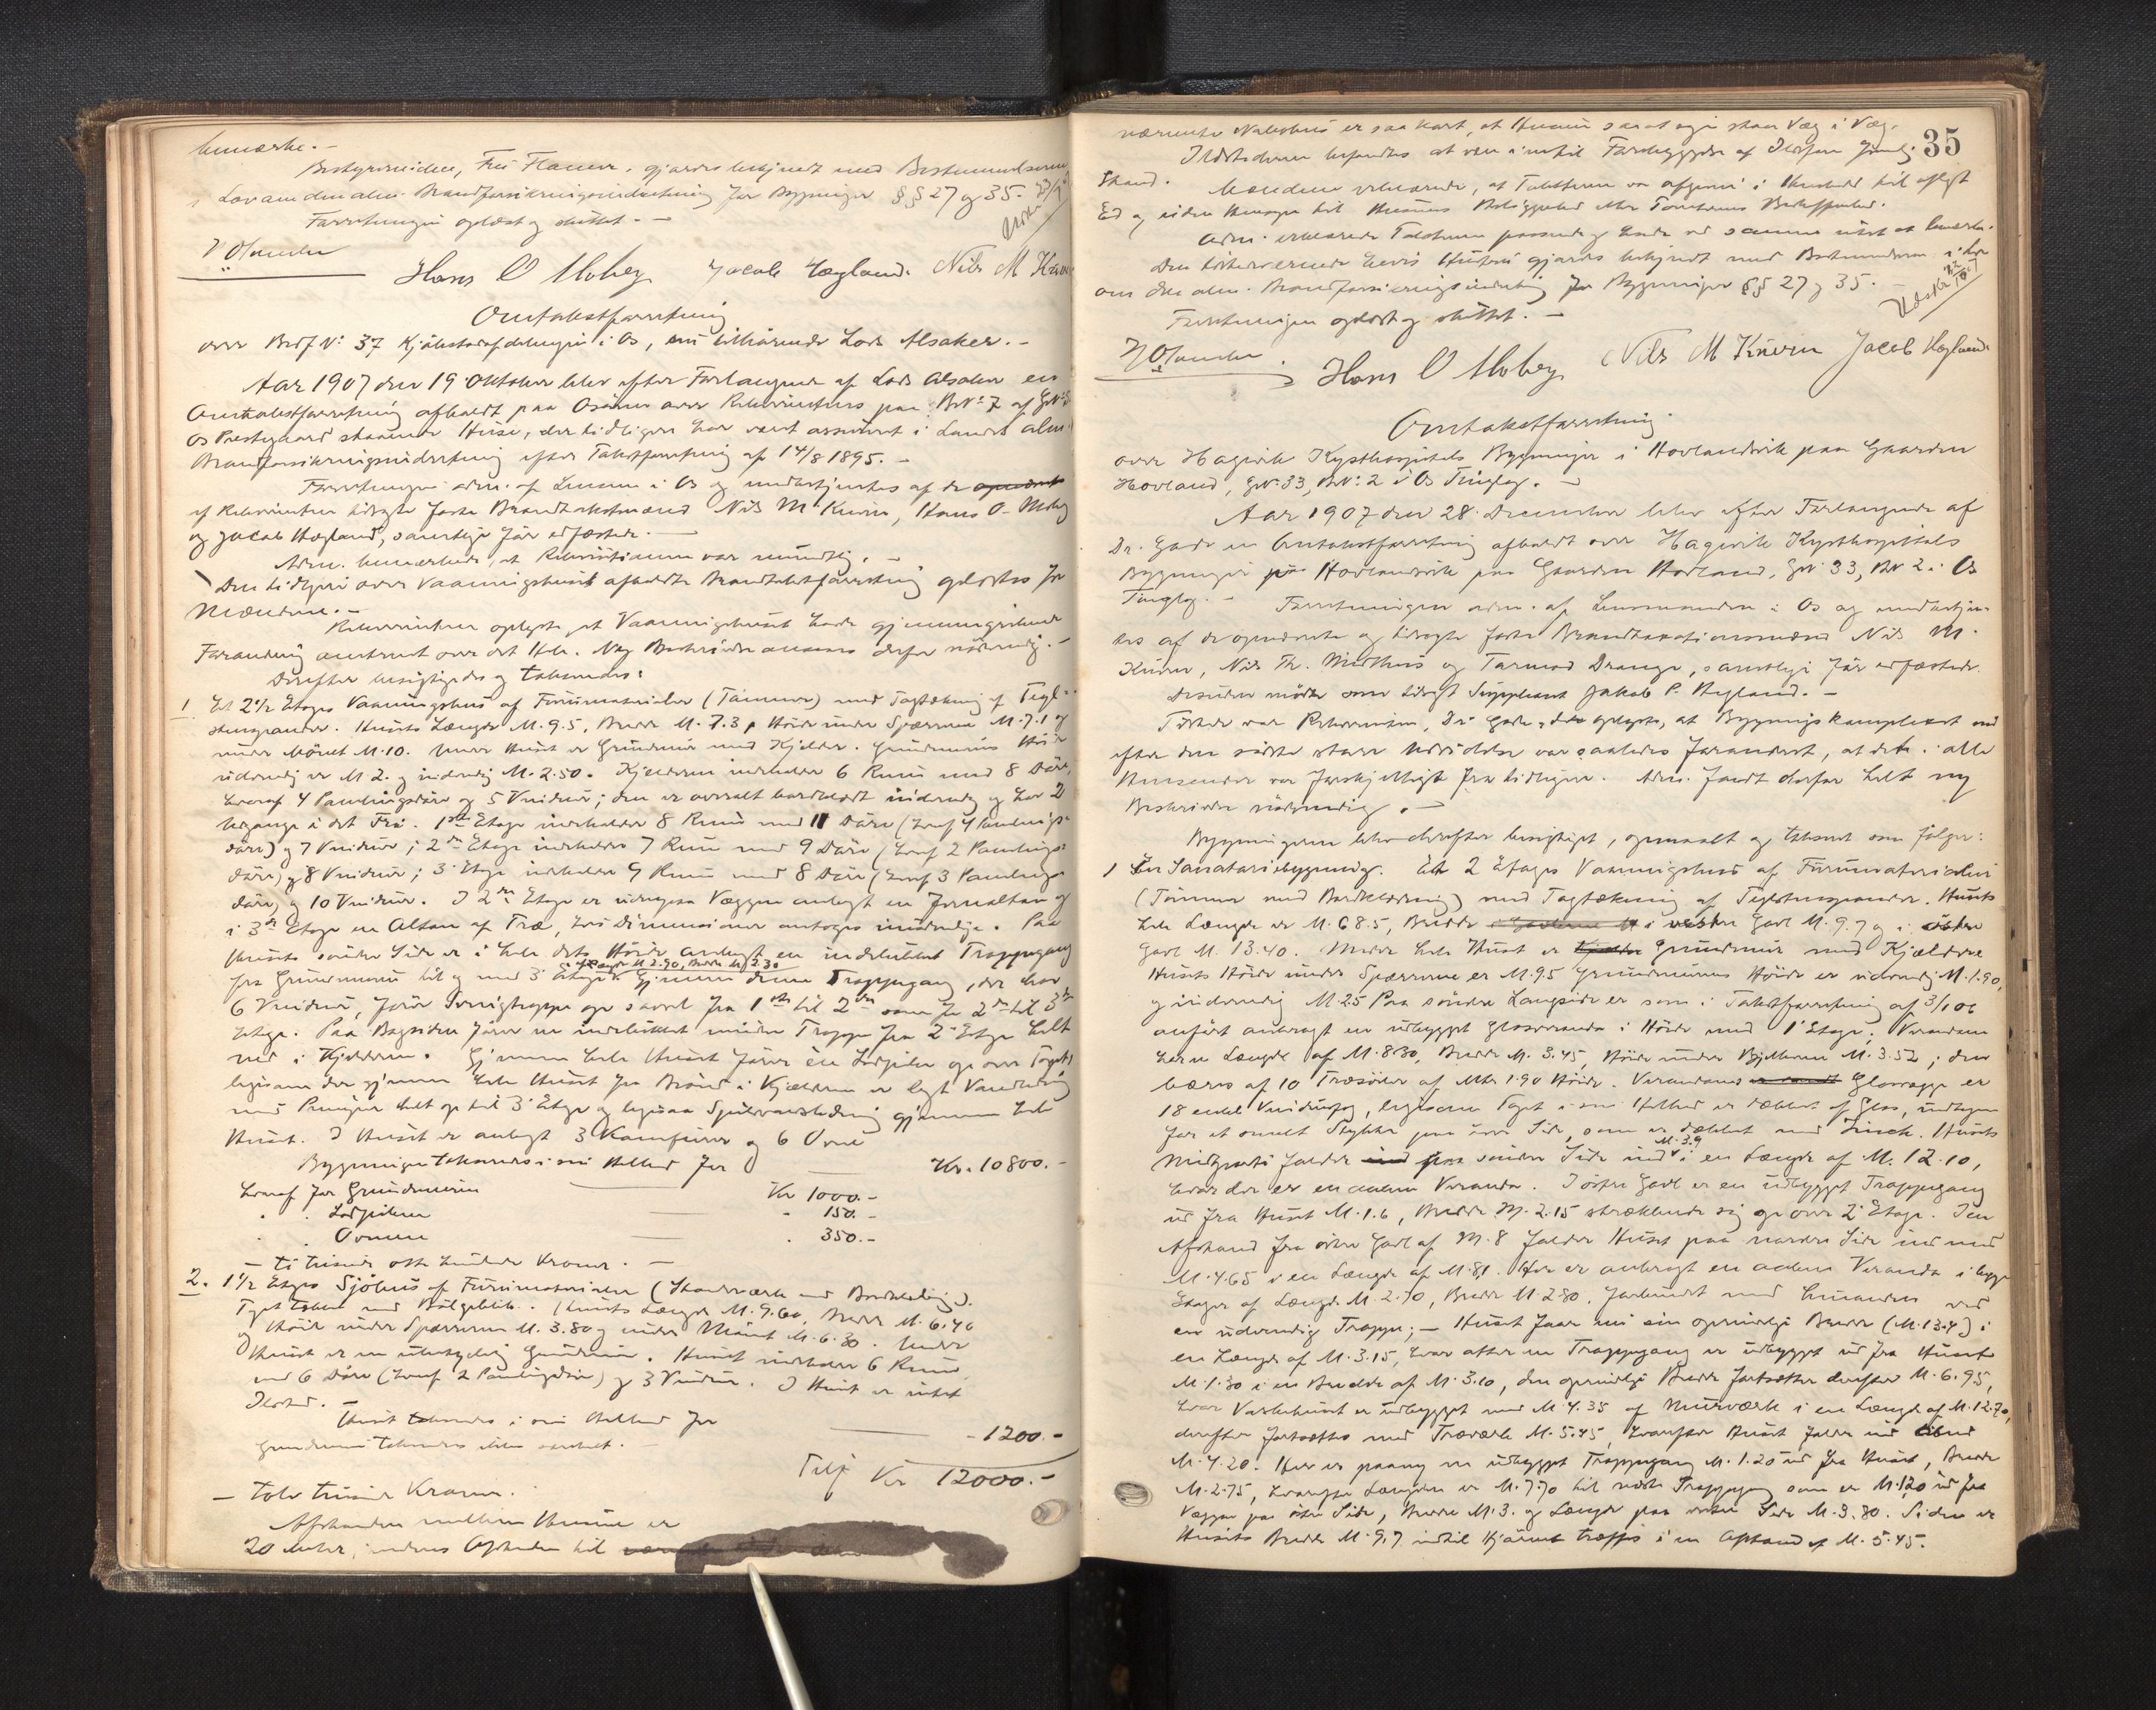 bemærke. -
Bestyrerinden, Frk Flauer, gjordes bekjendt med Bestemmelserne
i Lov om den alm. Brandforsikringsindretning for Bygninger §§ 27 og 35. -
Forretningen oplæst og sluttet. -
Hans O Moberg Jacob Hægland. Nils M Kuven
Omtakstforretning
over Brdf. N: 37 Kjøbstadafdelingen i Os, nu tilhørende Lars Alsaker. -
Aar 1907 den 19 Oktober blev efter Forlangende af Lars Alsaker en
Omtakstforretning afholdt paa Osøren over Rekvirentens paa BrN: 7 af GN:
Os Prestegaard staaende Huse, der tidligere har været assureret i Landets alm.
Brandforsikringsindretning efter Takstforretning af 14/8 1895. -
Forretningen adm. af Lensm. i Os og medbetjentes af de
af Rekvirenten tilsagte faste Brandtakstmænd Nils M. Kuven, Hans O. Moberg
og Jacob Hægland, samtlige før edfæstede. -
Adm. bemærkede, at Rekvisitionen var mundtlig. -
Den tidligere over Vaaningshuset afholdte Brandtakstforretning oplæstes for
Mændene. -
Rekvirenten oplyste, at Vaaningshuset havde gjennemgaaet
Forandring omtrent over det Hele. Ny Beskrivelse ansees derfor nødvendig. -
Derefter besigtigedes og takseredes:
1 Et 2 1/2 Etages Vaaningshus af Furumaterialer (Tømmer) med Tagtækning af Tegl-
stenspander. Husets Længde M. 9.5, Bredde M. 7.3, Høide under Spærrene M. 7.1 og
under Mønet M. 10. Under Huset er Grundmur med Kjelder. Grundmurens Høide
udvendig er M 2. og indvendig M. 2.50. Kjelderen indeholder 6 Rum med 8 Døre,
hvoraf 4 Panelingsdøre og 5 Vinduer; den er overalt bordklædt indvendig og har 2
Udgange i det Fri. 1ste Etage indeholder 8 Rum med 11 Døre (hvoraf 4 Panelings-
døre) og 7 Vinduer; 2den Etage indeholder 7 Rum med 9 Døre (hvoraf 2 Panelings-
døre) og 8 Vinduer; 3' Etage indeholder 9 Rum med 8 Døre (hvoraf 3 Panelings-
døre) og 10 Vinduer. I 2den Etage er udenpaa Væggen anbragt en Jernaltan og
i 3de Etage en Altan af Træ, hvis Dimensioner antoges unødvendige. Paa
Husets søndre Side er i hele dets Høide anbragt en indelukket Trappegang
Længde M 2.90, Bredde M 2.30
fra Grundmuren til og med 3' Etage. Gjennem denne Trappegang, der har
6 Vinduer, fører Svingtrappe op saavel fra 1ste til 2den som fra 2den til 3de
Etage. Paa Bagsiden fører en indelukket mindre Trappe fra 2' Etage helt
ned i Kjelderen. Gjennem hele Huset fører en Ildpibe op over Taget,
ligesom der gjennem hele Huset fra Brønd i Kjælderen er lagt Vandledning
med Pumpe helt op til 3' Etage og ligesaa Spildevandsledning gjennem hele
Huset. I Huset er anbragt 3 Komfurer og 6 Ovne
Bygningen takseredes i sin Helhed for Kr. 10800. -
hvoraf for Grundmuren Kr 1000. -
" " Ildpiben - 150. -
" " Ovnene " 350. -
- ti tusinde otte hundrede Kroner. -
2. 1 1/2 Etages Sjøhus af Furumaterialer (Stavværk med Bordklædning).
Taget tækket med Bølgeblik. Husets Længde M. 9.60, Bredde M. 6.40
og Høide under Spærrene M. 3.80 og under Mønet M. 6.30. Under
Huset er en ubetydelig Grundmur. Huset indeholder 6 Rum
med 6 Døre (hvoraf 2 Panelingsdøre) og 3 Vinduer. I Huset er intet
Ildsted. -
Huset takseredes i sin Helhed for - 1200. -
Grundmuren takseredes ikke særskilt. -
Tilsf Kr 12000. -
- Tolv tusinde Kroner. -
Afstanden mellem Husene er
20 meter, medens Afstanden til
35
nærmeste Nabohus er saa kort, at Husene saa at sige staar Væg i Væg.
Ildstederne befandtes at være i
Stand. Mændene erklærede, at Taksterne var afgivne i Henhold til aflagt
Ed og uden Hensyn til Husenes Beliggenhed eller Tomtens Beskaffenhed.
Adm. erklærede Taksterne passende og havde ved samme intet at bemærke.
Den tilstedeværende Eiers Hustru gjordes bekjendt med Bestemmelserne i Lov
om den alm. Brandforsikringsindretning for Bygninger §§ 27 og 35. -
Forretningen oplæst og sluttet. -
Hans O Moberg Nils M Kuven Jacob Hægland
Omtakstforretning
over Hagevik Kysthospitals Bygninger i Hovlandsvik paa Gaarden
Hovland, GN: 33, BN: 2 i Os Tinglag. -
Aar 1907 den 28. December blev efter Forlangende af
Dr. Gade en Omtakstforretning afholdt over Hagevik Kysthospitals
Bygninger paa Hovlandsvik paa Gaarden Hovland, GN 33, BN 2 i Os
Tinglag. - Forretningen adm. af Lensmanden i Os og medbetjen-
tes af de opnævnte og tilsagte faste Brandtakstionsmænd Nils M.
Kuven, Nils Th. Midthus og Tormod Drange, samtlige før edfæstede.
Desuden mødte som tilsagt Suppleant Jakob P. Hægland. -
Tilstede var Rekvirenten, Dr. Gade, der oplyste, at Bygningskomplexet
efter den sidste store Udvidelse var saaledes forandret, at det i alle
Henseender var forskjelligt fra tidligere. Adm. fandt derfor helt ny
Beskrivelse nødvendig. -
Bygningerne blev derefter besigtiget, opmaalt og takseret som følger:
1 En Sanatoriebygning. Et 2 Etages Vaaningshus af Furumaterialer
(Tømmer med Bordklædning) med Tagtækning af Teglstenspander. Husets
hele Længde er M. 68.5, Bredde i vestre Gavl M. 9.7 og i østre
Gavl M. 13.40. Under hele Huset er Grundmur med Kjældere
Husets Høide under Spærrene er M. 9.5 Grundmurens Høide er udvendig M. 1.90,
og indvendig M. 2.5 Paa søndre Langside er som i Takstforretning af 3/1 06
anført anbragt en udbygget Glasveranda i Høide med 1' Etage; Verandaen
har en Længde af M. 8.30, Bredde M. 3.45, Høide under Bjelkerne M. 3.52; den
bæres af 10 Træsøiler af Mtr. 1.90 Høide. Verandaens Glasvægge er
18 enkelt Vinduesfag, ligesom Taget i sin Helhed er dækket af Glas, undtagen
for et smalt Stykke paa hver Side, som er dækket med Zinck. Husets
M. 3.9
Midtparti falder paa søndre Side ind i en Længde af M. 12.10,
hvor der er en aaben Veranda. I østre Gavl er en udbygget Trappegang
ud fra Huset M. 1.6, Bredde M. 2.15 strækkende sig op over 2' Etage. I en
Afstand fra østre Gavl af M. 8 falder Huset paa nordre Side ind med
M. 4.65 i en Længde af M. 8,1. Her er anbragt en aaben Veranda i begge
Etager af Længde M. 2.70, Bredde M. 2.80. forbundet med hinanden ved
en udvendig Trappe; - Huset faar nu sin oprindelige Bredde (M. 13.4) i
en Længde af M. 3.15, hvor atter en Trappegang er udbygget ud fra Huset
M. 1.30 i en Bredde af M. 3.10, den oprindelige Bredde fortsætter derefter M. 6.95,
hvor Vaskehuset er udbygget med M. 4.35 af Murværk i en Længde af M. 12.70,
derefter fortsættes med Træværk M. 5.45, hvorefter Huset falder ind
M. 4.20. Her er paany en udbygget Trappegang M. 1.20 ud fra Huset, Bredde
M. 2.75, hvorefter Længden er M. 7.70 til næste Trappegang som er M. 1.20 ud fra
Væggen paa østre Side, Bredde M. 3. og Længde paa vestre Side M. 3.80. Siden er
Husets Bredde M. 9.7 indtil Hjørnet træffes i en Afstand af M. 5.45.